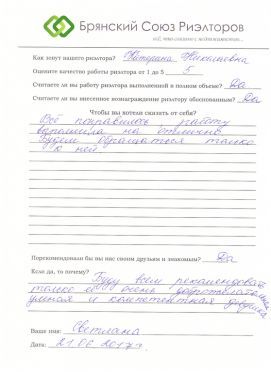 Брянский Союз Риэлторов
всё, что связано с недвижимостью...
Как зовут вашего риэлтора? Катерина Николаевна
Оцените качество работы риэлтора от 1 до 5 5
Считаете ли вы работу риэлтора выполненной в полном объеме? Да
Считаете ли вы внесенное вознаграждение риэлтору обоснованным? Да
Чтобы вы хотели сказать от себя?
Всё понравилось, работу
выполнила на отлично
Будем обращаться только
к ней.
Порекомендовали бы вы нас своим друзьям и знакомым? Да
Если да, то почему? Буду всем рекомендовать
только её, очень доброжелательная,
умная и компетентная девушка
Ваше имя: Светлана
Дата: 21.06 2017г.